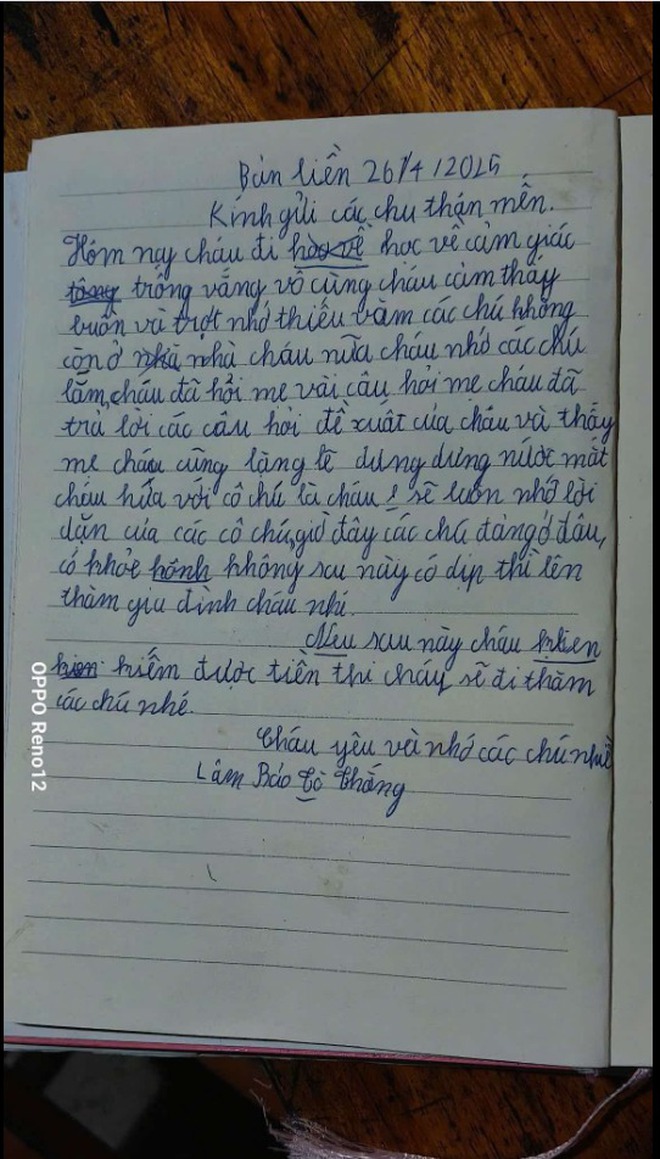 Bản liền 26/4/2025
Kính gửi các chu thân mến.
Hôm nay cháu đi học về cảm giác
trống vắng vô cùng cháu cảm thấy
buồn và trợt nhớ thiếu vắm các chú không
còn ở nhà cháu nữa cháu nhớ các chú
lắm, cháu đã hỏi mẹ vài câu hỏi mẹ cháu đã
trả lời các câu hỏi đề xuất của cháu và thấy
mẹ cháu cũng lặng lẽ dưng dưng nước mắt
cháu hứa với cô chú là cháu sẽ luôn nhớ lời
dặn của các cô chú, giờ đây các chú đang ở đâu,
có khỏe không sau này có dịp thì lên
thăm gia đình cháu nhé.
Nếu sau này cháu
kiếm được tiền thì cháu sẽ đi thăm
các chú nhé.
Cháu yêu và nhớ các chú nhiều
Lâm Bảo Thắng
OPPO Reno12